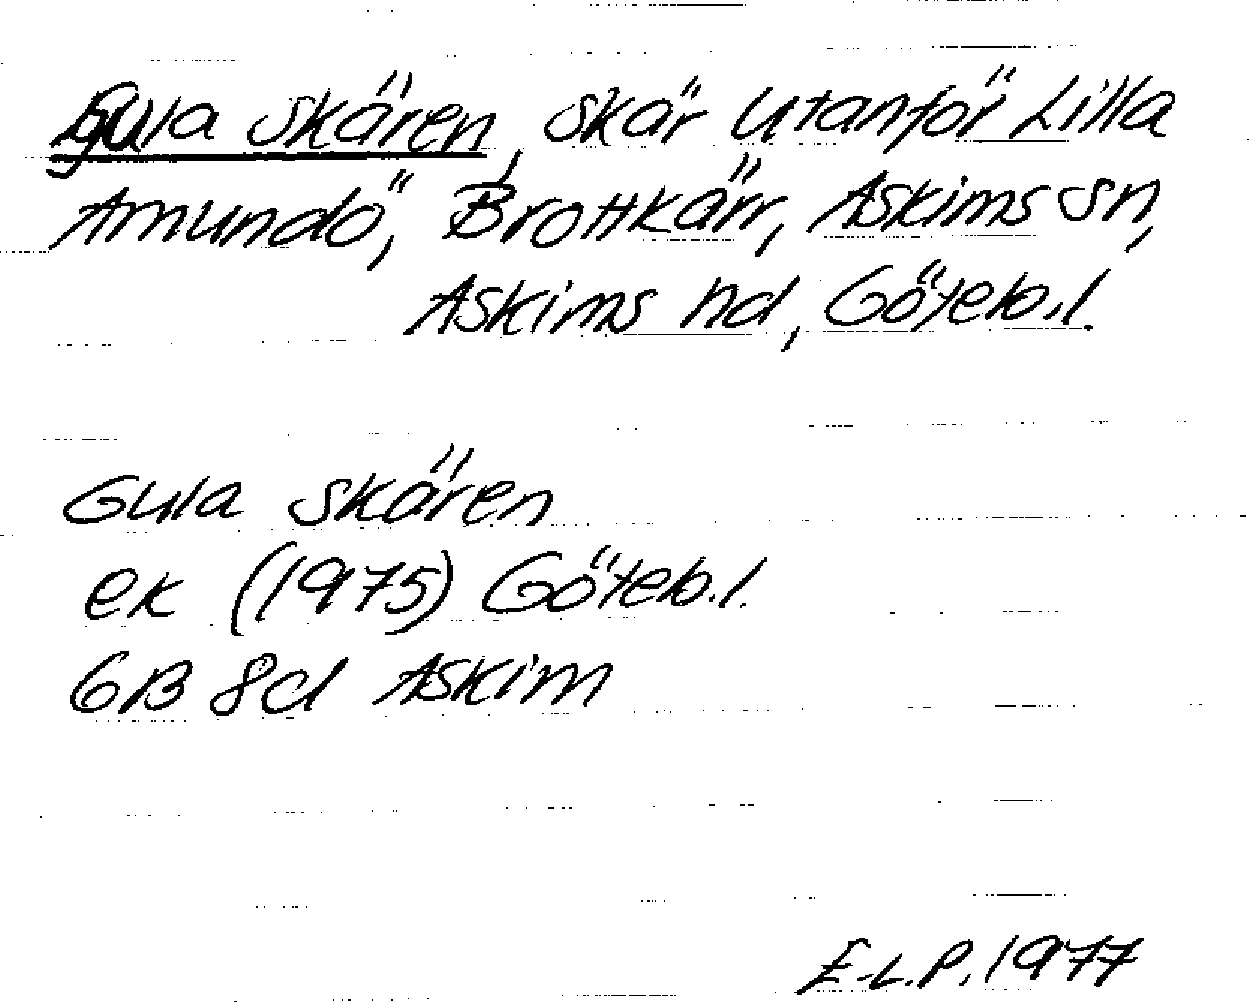 Gula skären, skär utanför Lilla
Amundö, Brottkärr, Askims sn,
Askims hd, Göteb.l.
Gula skären
ek (1975) Göteb.l.
6B 8d Askim
E-L.P. 1977